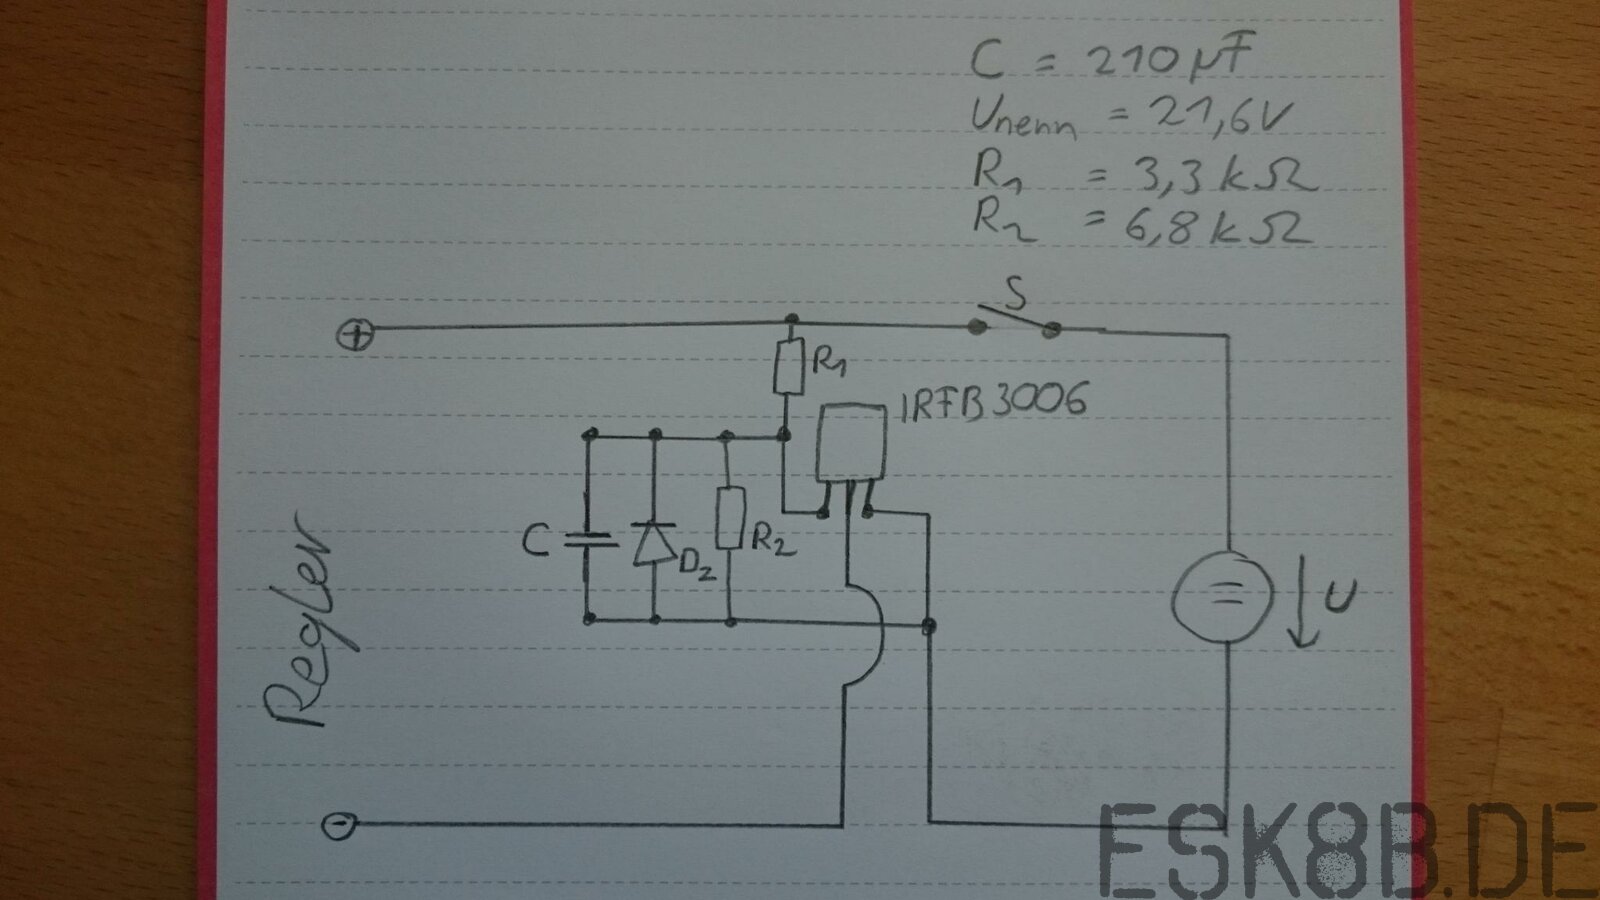 C = 210 µF
Unenn = 21,6V
R1 = 3,3 kΩ
R2 = 6,8 kΩ
S
+
R1
IRFB3006
C
D2
R2
=
U
Regler
-
ESK8B.DE